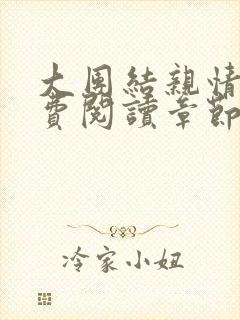 大團結親情
費閱讀章節
冷家小妞